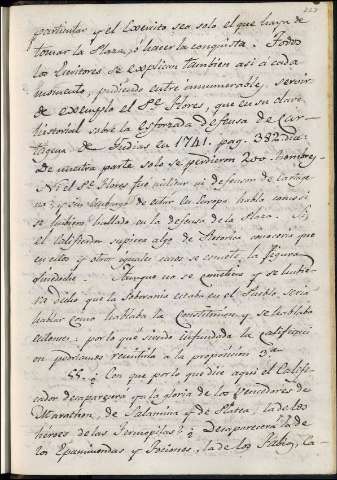 particular y el Exercito sea solo el que haya de
tomar la Plaza, ó hacer la conquista. Todos
los Escritores se explican tambien asi á cada
momento, pudiendo entre innumerables servir
de exemplo el Sr. Flores, que en su clave
historial sobre la esforzada defensa de Car-
tagena de Indias en 1741. pag. 382. dice:
De nuestra parte solo se perdieron 200. hombres.
Ni el Sr. Flores fué militar ni defensor de Cartage-
na; y sin embargo de estar en Europa habla como si
se hubiera hallado en la defensa de la Plaza. Si
el Calificador supiera algo de Retorica conoceria que
en estos y otros iguales casos se comete la figura
Sinedoche. Aunque no se cometiera y se hubie-
ra dicho que la Soberania estaba en el Pueblo, seria
hablar como hablaba la Constitucion y se hablaba
entonces: por lo qué siendo infundada la calificaci-
on pudieramos remitirlo á la proposicion 3ª.
55. ¿Con que por lo que dice aqui el Califi-
cador desaparecera ya la gloria de los vencedores de
Marathon, de Salamina y de Platea, la de los
héroes de las Termopilas? ¿Desaparecerá la de
los Epaminondas y Fociones, la de los Fabios, Ca-